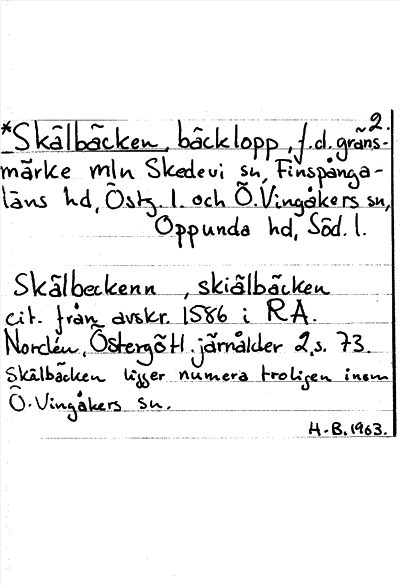 2.
*Skälbäcken, bäcklopp, f.d. gräns-
märke mln Skedevi sn, Finspånga-
läns hd, Östg. l. och Ö. Vingåkers sn,
Oppunda hd, Söd. l.
Skälbeckenn, skiälbäcken
cit. från avskr. 1586 i RA.
Nordén, Östergötl. järnålder 2, s. 73.
Skälbäcken ligger numera troligen inom
Ö. Vingåkers sn.
H-B. 1963.